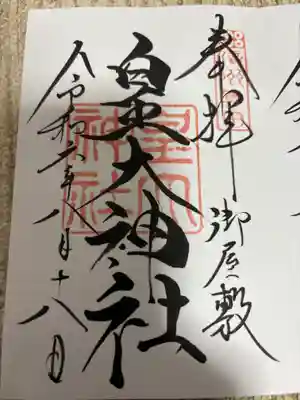 奉拝
御屋敷
皇大神社
令和六年八月十八日
皇大
神社